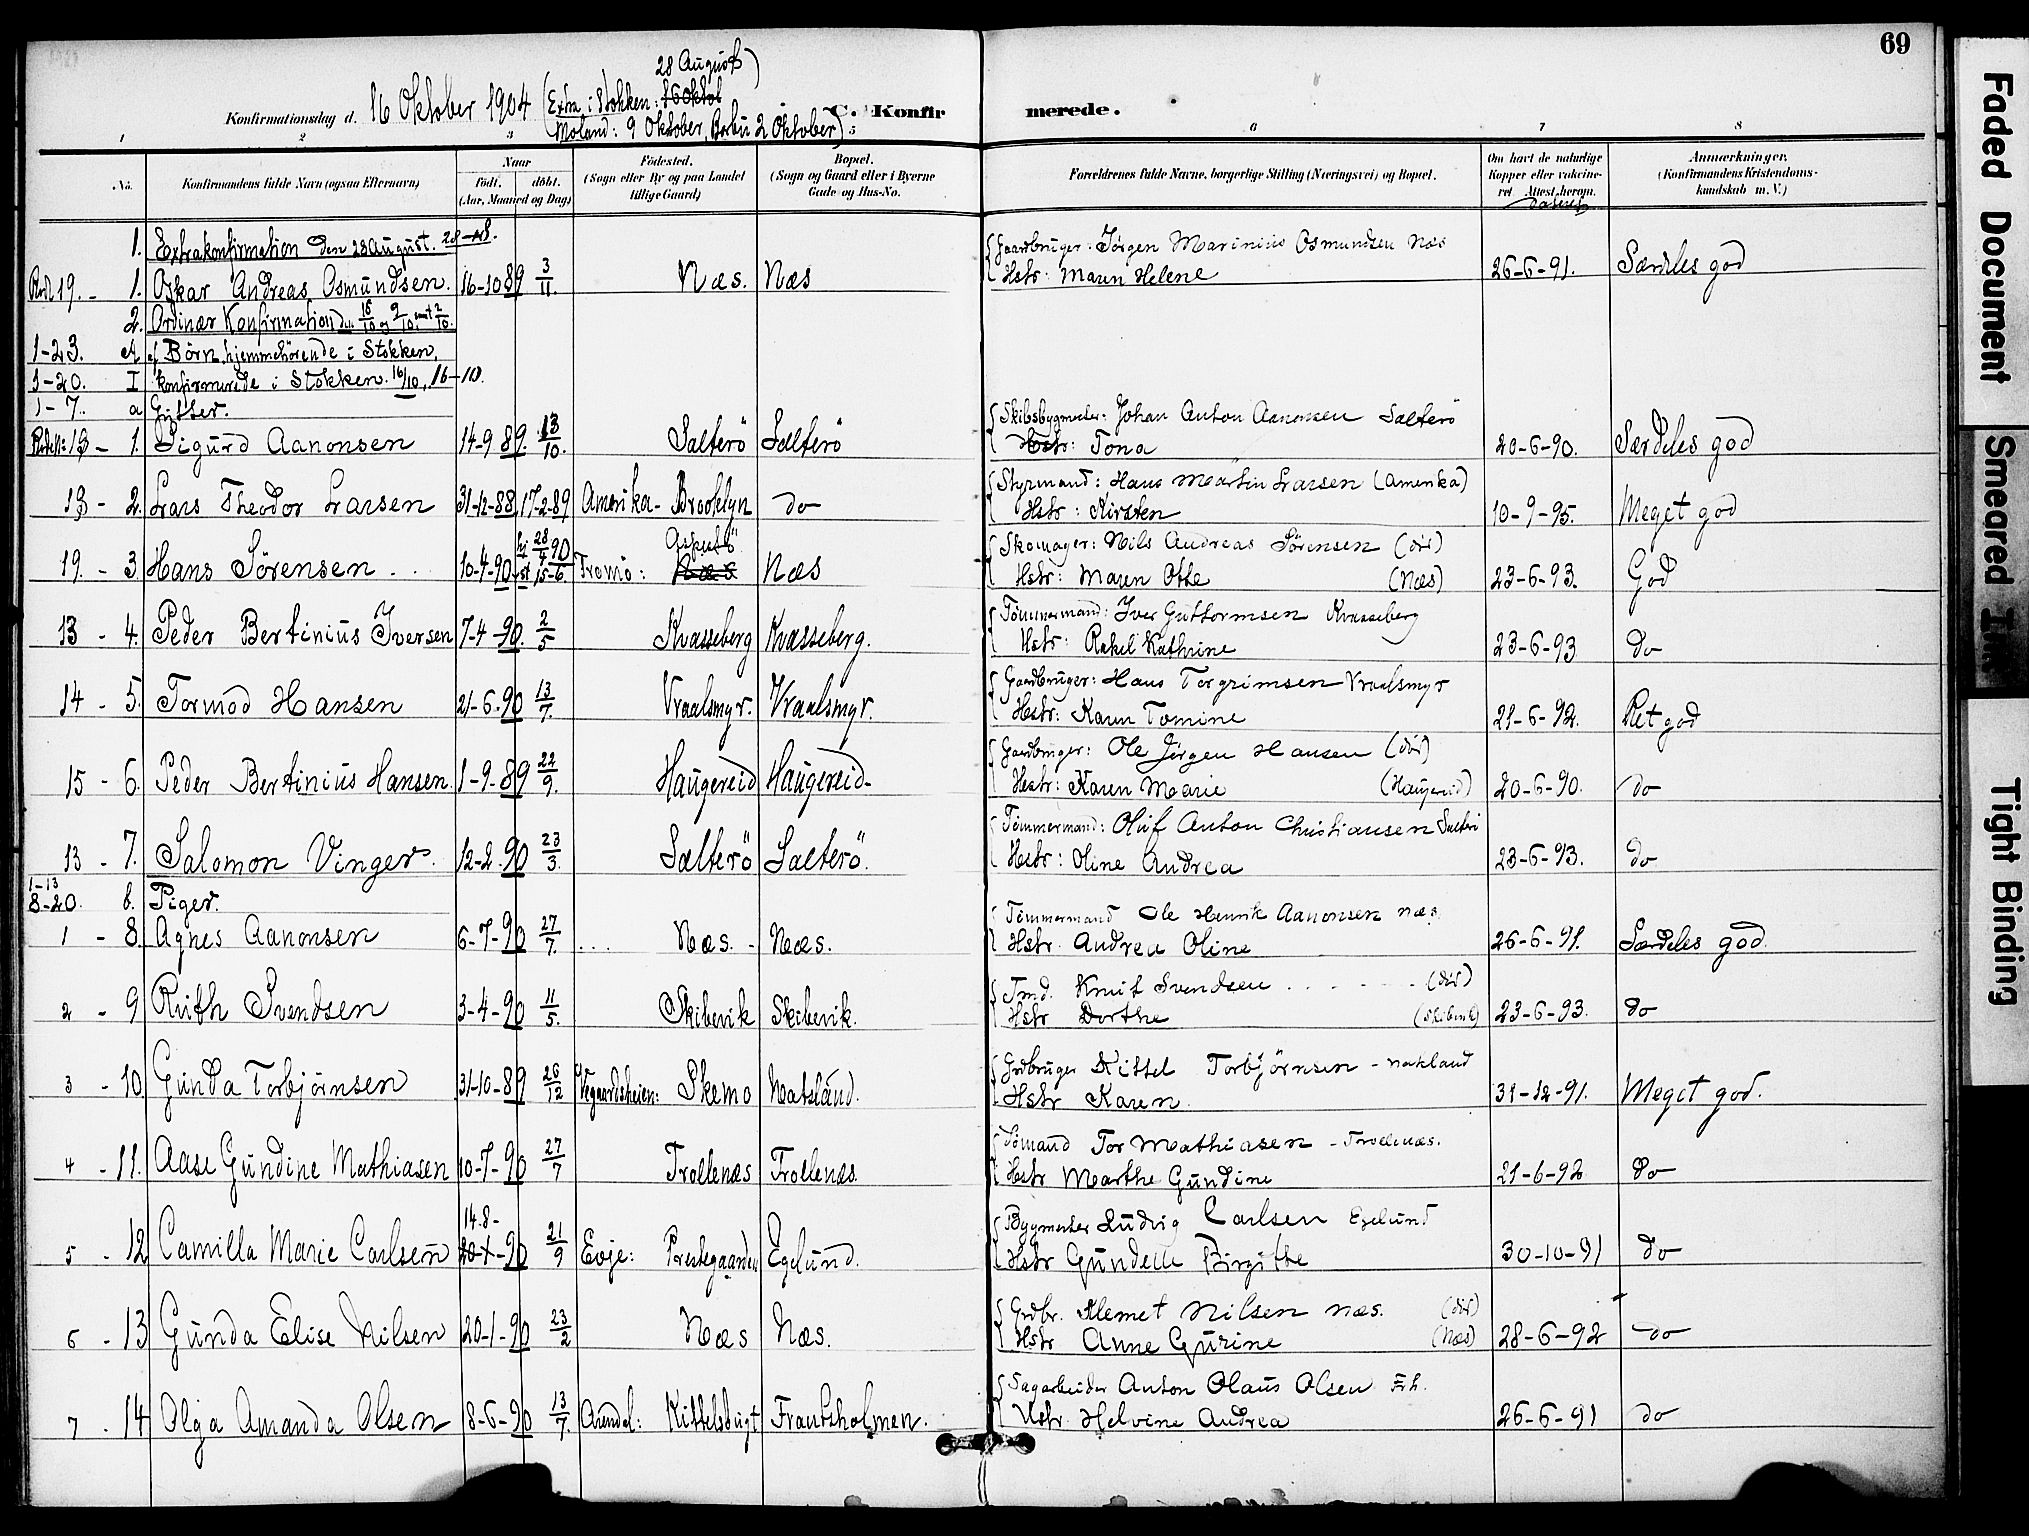 69
Konfirmationsdag d. 16 Oktober 1904 (Extra i Stokken: 16 Oktob 28 August)
(Moland: 9 Oktober, Barbu 2 Oktober)
C. Konfirmerede.
1 2 3 5 6 7 8
No. Konfirmandens fulde Navn (ogsaa Efternavn)
Naar født. døbt. (Aar, Maaned og Dag)
Fødested. (Sogn eller By og paa Landet tillige Gaard)
Bopæl. (Sogn og Gaard eller i Byerne Gade og Hus-No.
Forældrenes fulde Navne, borgerlige Stilling (Næringsvei) og Bopæl.
Om havt de naturlige Kopper eller vakcineret. Attest herom.
Anmærkninger. (Konfirmandens Kristendomskundskab m. V.)
1. Extrakonfirmation den 28 August. 28-8.
19. - 1. Oskar Andreas Osmundsen. 16-10 89 3/11. Næs. Næs Gaardbruger: Jørgen Marinius Osmundsen Næs
Hstr: Maren Helene 26-6-91. Særdeles god
2. Ordinær Konfirmation den 16/10 og 9/10, samt 2/10.
1-23. A af Børn, hjemmehørende i Stokken,
1-20. I konfirmerede i Stokken. 16/10, 16-10.
1-7. a Gutter.
13 - 1. Sigurd Aanonsen 14-9 89. 13/10. Salterö Salterö Skibsbygmester: Johan Anton Aanonsen Salterö
Hstr: Tona 20-6-90. Særdeles god
13 - 2. Lars Theodor Larsen 31-12-88, 17-2-89 Amerika- Brooklyn do Styrmand: Hans Martin Larsen (Amerika)
Hstr: Kirsten 10-9-95. Meget god
19. - 3 Hans Sørensen 10-4-90 hj 28/4 90 st 15-6 Tromö: Næs Næs Skomager: Nils Andreas Sørensen (död)
Hstr: Maren Othe (Næs) 23-6-93. God
13 - 4. Peder Bertinius Iversen 7-4-90. 2/5 Kvasseberg Kvasseberg. Tømmermand: Iver Guttormsen Kvasseberg
Hstr: Rakel Kathrine 23-6-93 do
14 - 5. Tormod Hansen 21-6-90 13/7. Vraalsmyr. Vraalsmyr. Gaardbruger: Hans Torgrimsen Vraalsmyr
Hstr: Karen Tomine 21-6-92. Ret god
15 - 6. Peder Bertinius Hansen 1-9-89 22/9. Haugereid Haugereid- Gaardbruger: Ole Jørgen Hansen (död)
Hstr: Karen Marie (Haugereid) 20-6-90. do
13 - 7. Salomon Vinger. 12-2-90 23/3. Salterö Salterö. Tömmermand: Oluf Anton Christiansen Salterö
Hstr: Oline Andrea 23-6-93. do
1-13
8-20. b. Piger.
1 - 8. Agnes Aanonsen 6-7-90 27/7. Næs. - Næs. Tömmermand Ole Henrik Aanonsen Næs.
Hstr. Andrea Oline 26-6-91. Særdeles god.
2 - 9 Ruth Svendsen 3-4-90 11/5. Skibevik Skibevik. Tmd. Knut Svendsen (död)
Hstr Dorthe (Skibevik) 23-6-93. do
3 - 10 Gunda Torbjørnsen 31-10-89 26/12 Vegaardsheien: Skemo Natsland. Grdbruger Kittel Torbjørnsen - Natsland
Hstr Karen. 31-12-91. Meget god.
4 - 11. Aase Gundine Mathiasen 10-7-90 27/7 Trollenæs Trollenæs. Sömand Tor Mathiasen - Trollenæs.
Hstr Marthe Gundine 21-6-92 do
5 - 12 Camilla Marie Carlsen 14.8-90 21/9 Evje: Prestegaarden Egelund. Bygmester Ludvig Carlsen Egelund
Hstr Gundelle Birgithe 30-10-91 do
6 - 13 Gunda Elise Nilsen 20-1-90 23/2 Næs Næs. Grdbr. Klemet Nilsen Næs. (död)
Hstr Anne Gurine (Næs) 28-6-92 do
7 - 14 Olga Amanda Olsen 8-6-90 13/7. Arendal: Kittelsbugt Frantsholmen. Sagarbeider Anton Olaus Olsen Frh.
Hstr. Helvine Andrea 26-6-91 do
Faded Document
Smeared Ink
Tight Binding